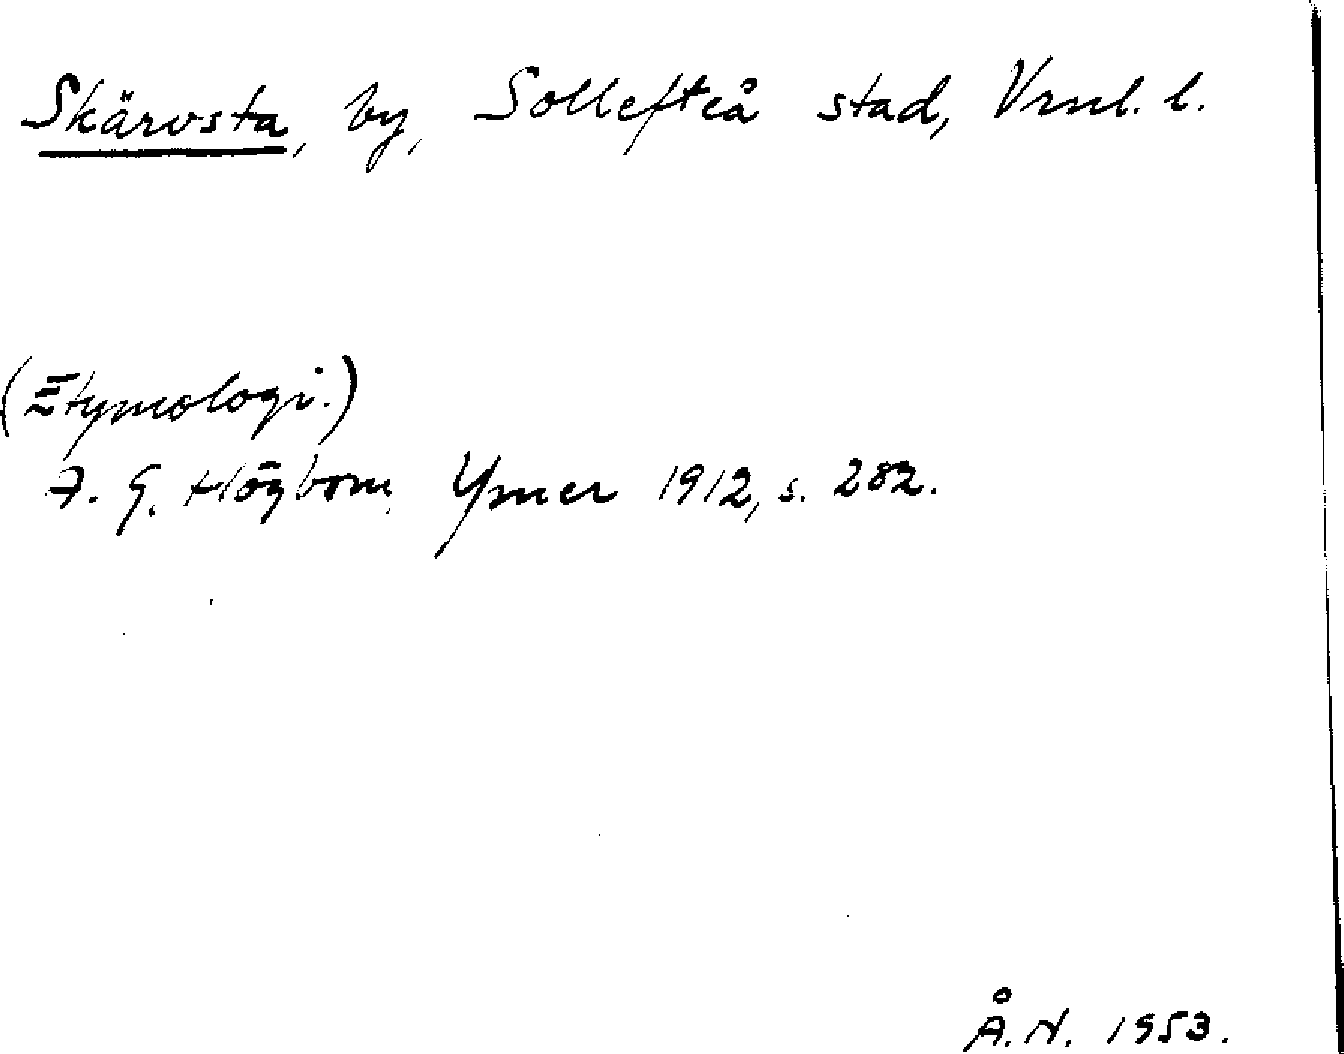 Skärvsta, by, Sollefteå stad, Vrnl. l.
(Etymologi.)
A. G. Högbom, Ymer 1912, s. 282.
Å. N. 1953.